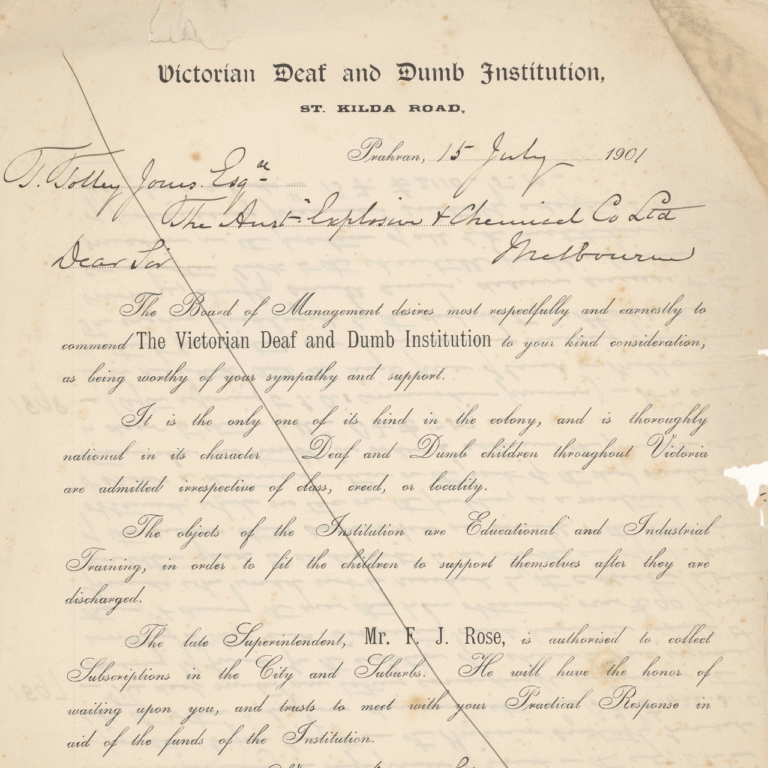 Victorian Deaf and Dumb Institution,
ST. KILDA ROAD,
Prahran, 15 July 1901
T. Tolley Jones. Esqre
The Austn Explosive & Chemical Co Ltd
Dear Sir Melbourne
The Board of Management desires most respectfully and earnestly to
commend The Victorian Deaf and Dumb Institution to your kind consideration,
as being worthy of your sympathy and support.
It is the only one of its kind in the colony, and is thoroughly
national in its character Deaf and Dumb children throughout Victoria
are admitted irrespective of class, creed, or locality.
The objects of the Institution are Educational and Industrial
Training, in order to fit the children to support themselves after they are
discharged.
The late Superintendent, Mr. F. J. Rose, is authorised to collect
Subscriptions in the City and Suburbs. He will have the honor of
waiting upon you, and trusts to meet with your Practical Response in
aid of the funds of the Institution.